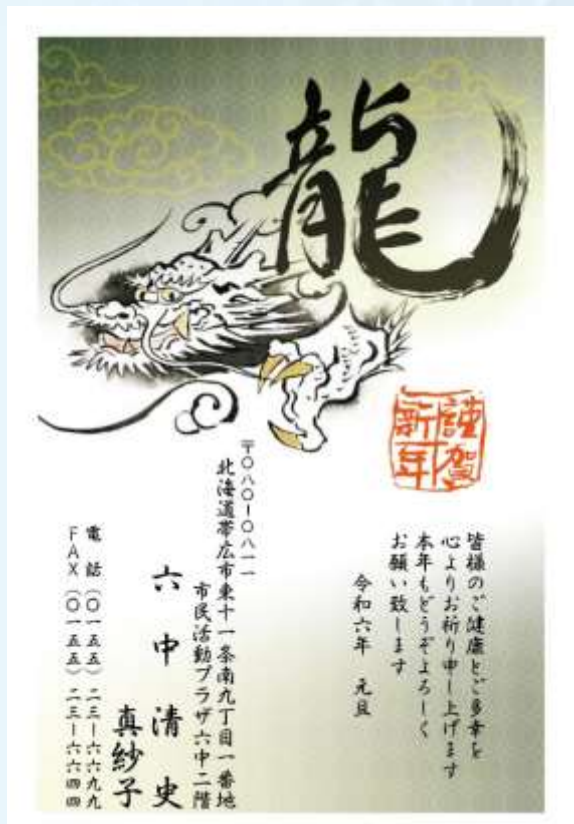 龍
謹賀
新年
皆様のご健康とご多幸を
心よりお祈り申し上げます
本年もどうぞよろしく
お願い致します
令和六年 元旦
〒〇八〇ー〇八一一
北海道帯広市東十一条南九丁目一番地
市民活動プラザ六中二階
六中清史
真紗子
電話(〇一五五)二三ー六六九九
FAX(〇一五五)二三ー六六四四